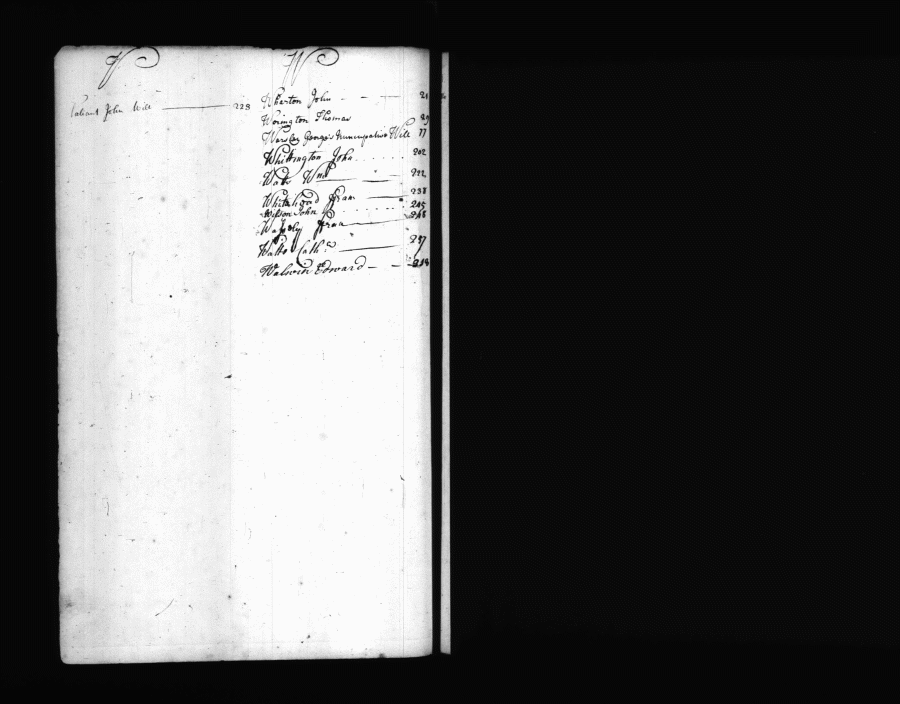 V
Valiant John Will 223
W
Wharton John 21
Worington Thomas 29
George's Nuncupative Will 77
Whittington John 202
Watts Wm 222
Whitehead Fran 238
Wilson John 245
Fran 246
Watts Cath:e 257
Walwin Edward 258